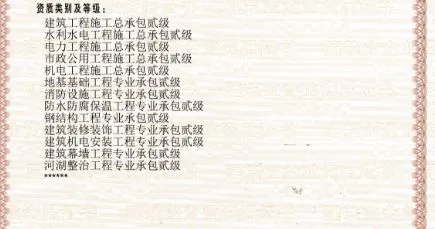 资质类别及等级：
建筑工程施工总承包贰级
水利水电工程施工总承包贰级
电力工程施工总承包贰级
市政公用工程施工总承包贰级
机电工程施工总承包贰级
地基基础工程专业承包贰级
消防设施工程专业承包贰级
防水防腐保温工程专业承包贰级
钢结构工程专业承包贰级
建筑装修装饰工程专业承包贰级
建筑机电安装工程专业承包贰级
建筑幕墙工程专业承包贰级
河湖整治工程专业承包贰级
******